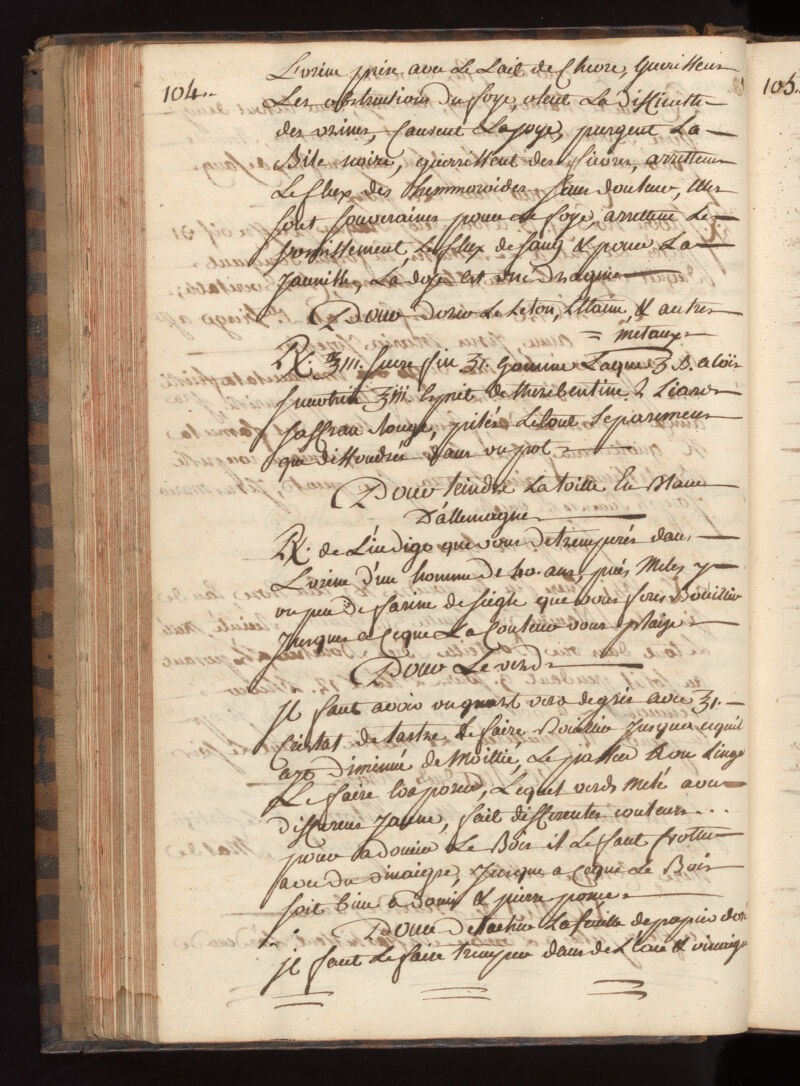 104..
L'orine prise avec Le Lait de Chevre, Guerissent
Les obstructions du foye, otent La difficulté
des urines, Causent La joye, purgent La
Bile noire, guerrissent des fievres, arrettent
Le flux des hemmoroides sans douleur, Elles
sont souveraines pour Le foye, arrettent Le
vomissement, Le flux de sang & pour La
Jaunisse, La dose est une Dragme
Pour dorer Le Leton, Ettain, & autres
= metaux =
R/. ℥iii. sucre fin ℥i. Gomme Laque ℥ ß. aloës
sucotrin ℥iii Esprit de therebentine 2 Liards
saffran Rouge, pilés Le tout separement
que dissoudrés dans un pot
Pour teindre La toille En Bleue
D'allemagne
R/. de L'indigo que vous detremperés dans
L'orine d'un homme de 40 ans, puis Meles y
un peu de farine de seigle que vous ferés Bouillir
Jusques a ceque La Couleur vous plaise =
Pour Le verd
jl faut avoir un quart verd de gris avec ℥i.
Cristal de tartre & faire Bouillir Jusqua cequil
aye Diminué de Moitié, Le passer & ou Linge
Le faire Evaporer, Lequel verd Melé avec
differens Jaune, fait differentes couleurs...
pour adoucir Le Bois il Le faut frotter
avec du vinaigre, Jusque a ceque Le Bois
soit bien adouci & pierre ponce =
Pour Detacher La feuille de papier doré
jl faut Le faire tremper dans de L'eau & vinaigre
105.